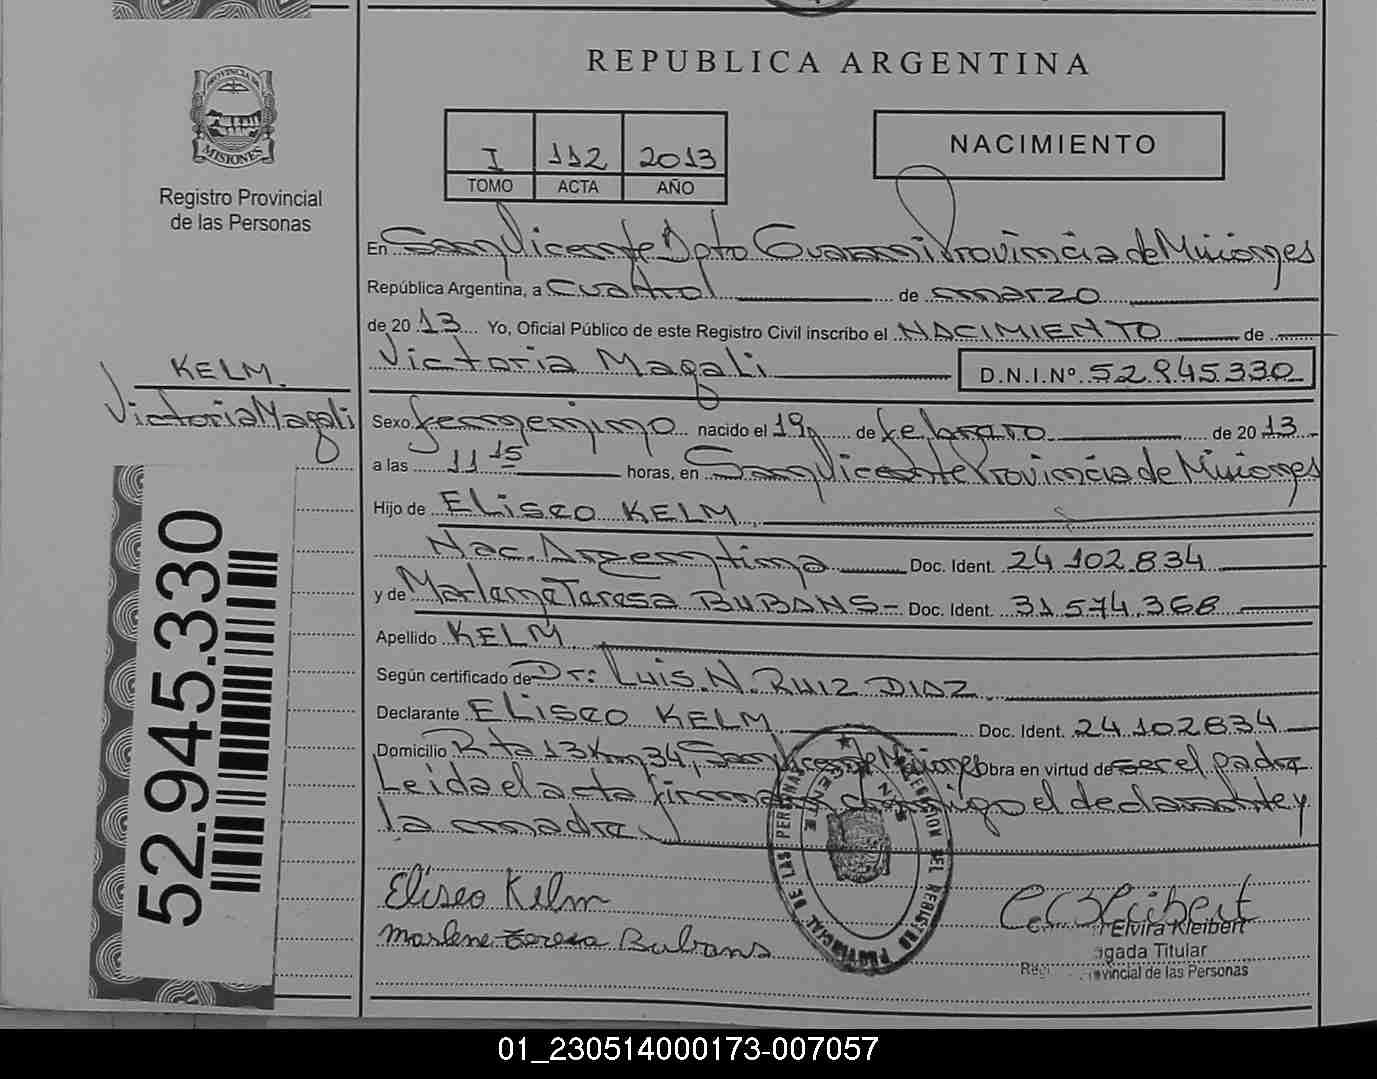 REPUBLICA ARGENTINA
PROVINCIA DE
MISIONES
Registro Provincial
de las Personas
I 112 2013
TOMO ACTA AÑO
NACIMIENTO
En San Vicente Dpto Guarani Provincia de Misiones
República Argentina, a cuatro de marzo
de 2013 Yo, Oficial Público de este Registro Civil inscribo el NACIMIENTO de
Victoria Magali D.N.I.Nº 52.945.330
KELM.
Victoria Magali
Sexo femenino nacido el 19 de febrero de 2013
a las 11 15 horas, en San Vicente Provincia de Misiones
Hijo de Eliseo KELM
Nac. Argentina Doc. Ident. 24.102.834
y de Marlene Teresa BUBANS - Doc. Ident. 31.574.368
Apellido KELM
Según certificado de Dr: Luis. N. RUIZ DIAZ
Declarante ELiseo KELM Doc. Ident. 24.102834
Domicilio Rta 13 Km 34, San Vicente Misiones Obra en virtud de ser el padre
Leida el acta firman conmigo el declarante y
la madre
52.945.330
Eliseo Kelm
Marlene teresa Bubans
Elvira Kleibert
gada Titular
Regi vincial de las Personas
PROVINCIAL DE LAS PERSONAS
DEL REGISTRO
01_230514000173-007057